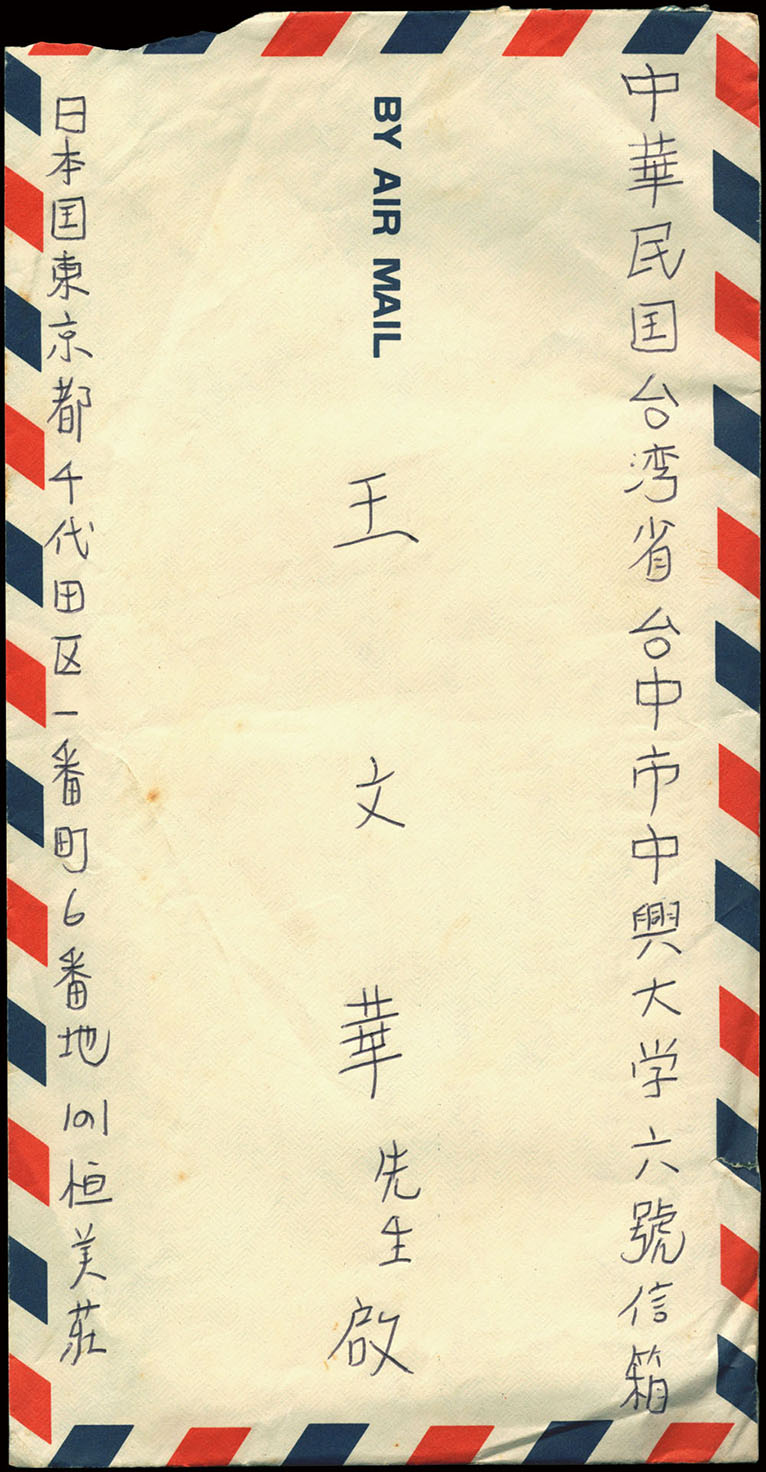 中華民国台湾省台中市中興大学六號信箱
BY AIR MAIL
王文華先生啟
日本国東京都千代田区一番町6番地101恒美莊